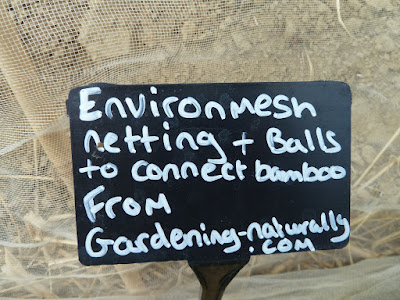 Environmesh
netting + Balls
to connect bamboo
From
Gardening-naturally
.com